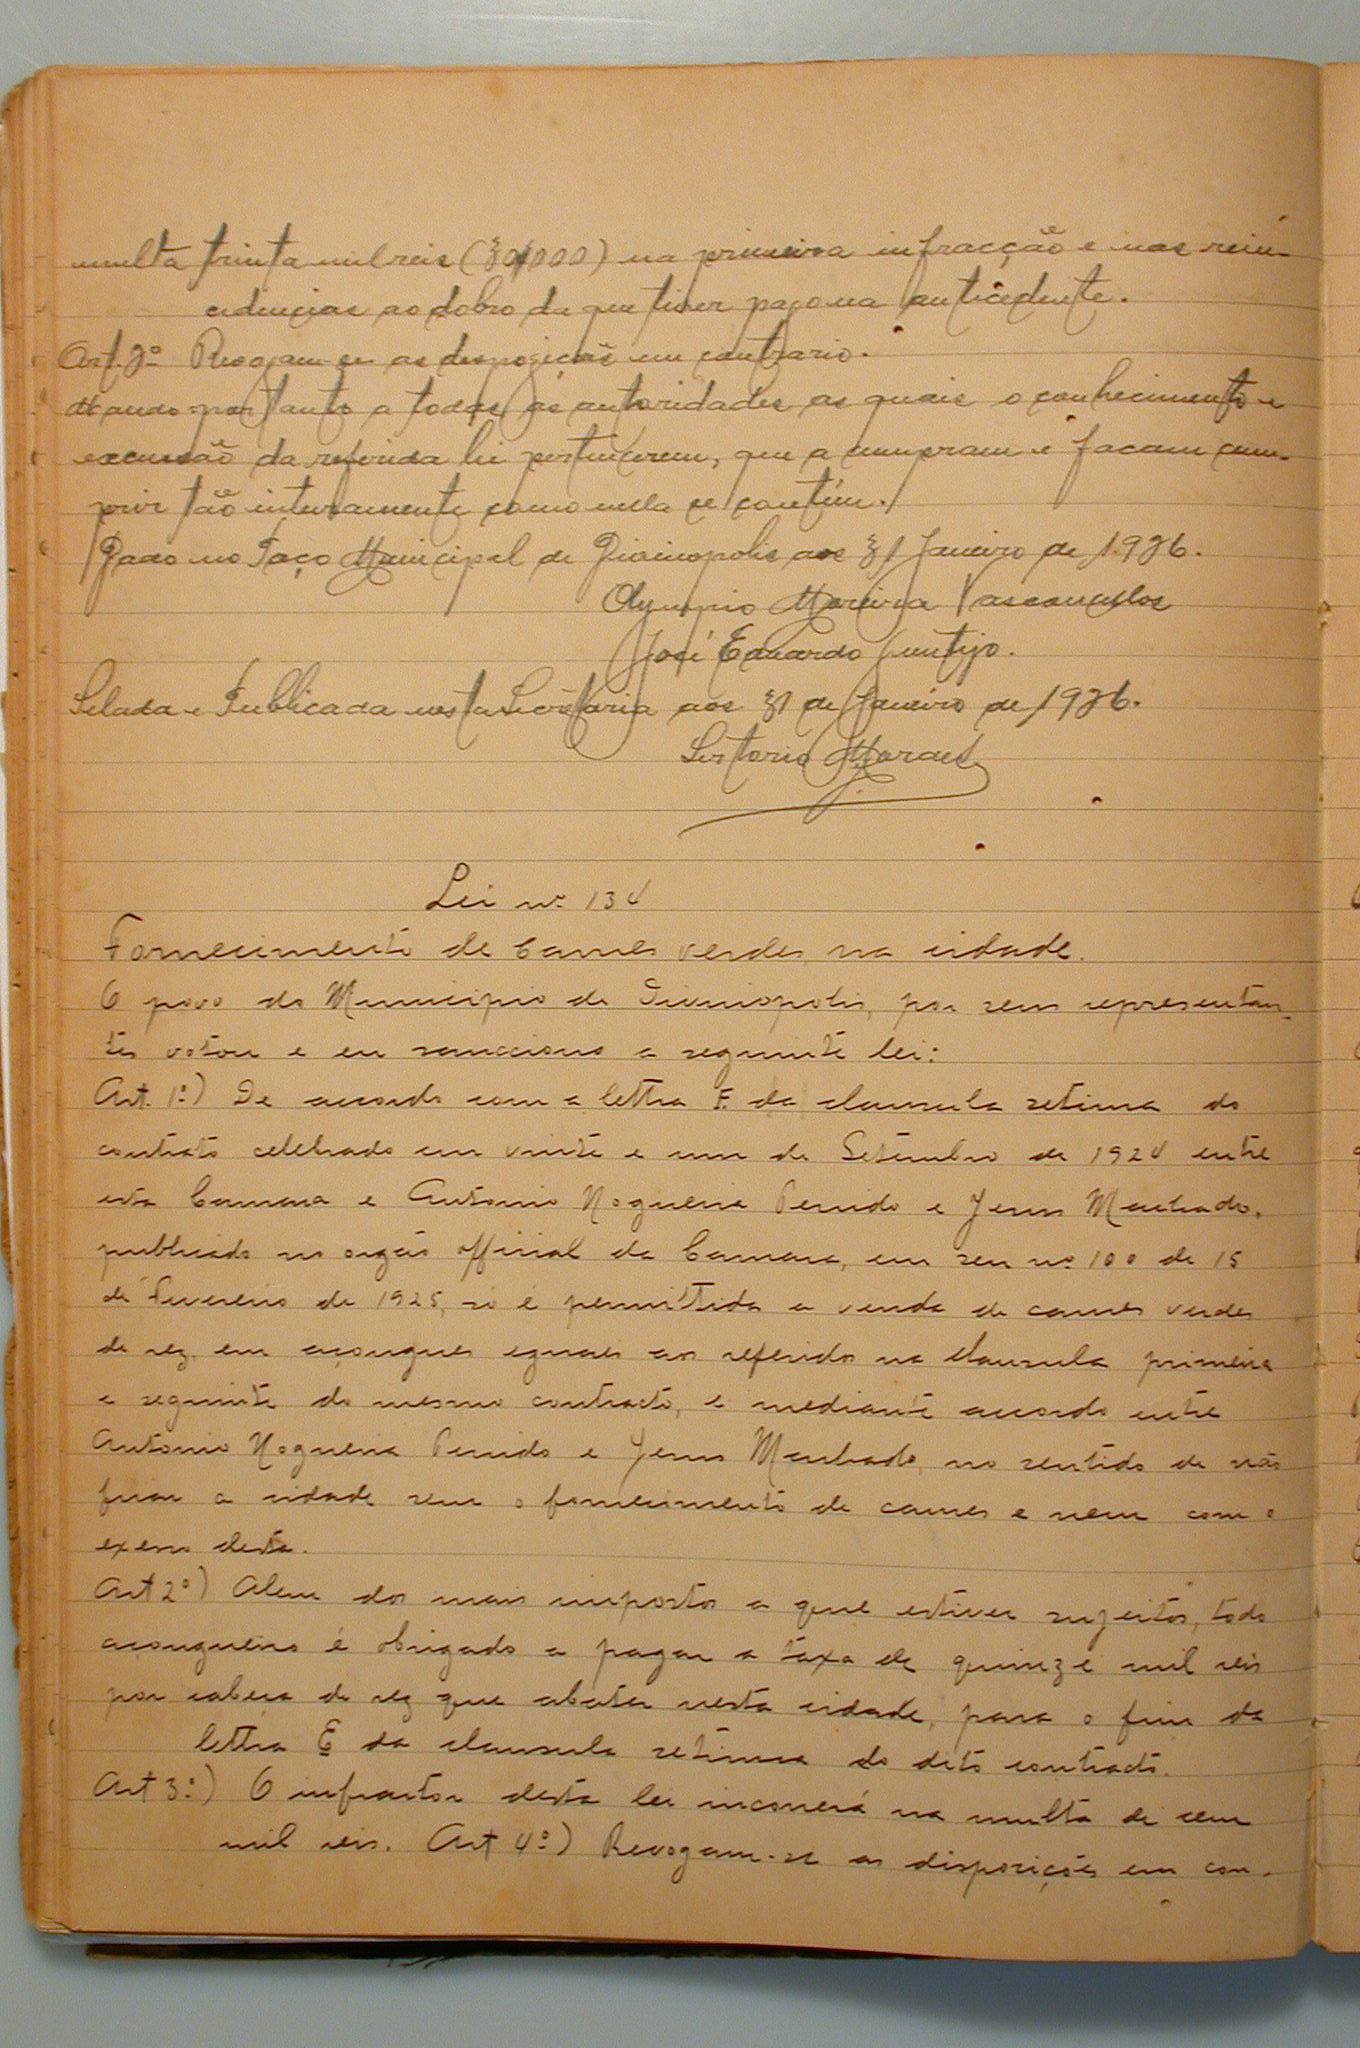 multa trinta mil reis (30$000) na primeira infracção e nas rein-
cidencias ao dobro da que tiver pago na antecedente.
Art. 2º Revogam-se as desposições em contrario.
Mando portanto a todas as autoridades as quais o conhecimento e
excussão da referida lei pertencerem, que a cumpram e facam cum-
prir tão inteiramente como nella se contém.
Dado no Paço Municipal de Divinopolis aos 31 Janeiro de 1.926.
Olympio Moreira Vasconcellos
José Eduardo
Selada e Publicada nesta Secretaria aos 31 de Janeiro de 1926.
Sertorio Moraes
Lei nº 134
Fornecimento de Carnes verdes na cidade.
O povo do Municipio de Divinopolis, por seus representan-
tes votou e eu sancciono a seguinte lei:
Art. 1º) De accordo com a lettra F. da clausula setima do
contrato celebrado em vinte e um de Setembro de 1924 entre
esta Camara e Antonio Nogueira Penido e Jesus Machado,
publicado no orgão official da Camara, em seu nº 100 de 15
de Fevereiro de 1925, só é permittida a venda de carnes verdes
de rez, em açougues eguaes aos referidos na clausula primeira
e seguinte do mesmo contracto, e mediante accordo entre
Antonio Nogueira Penido e Jesus Machado, no sentido de não
ficar a cidade sem o fornecimento de carnes e nem com o
exesso desta.
Art 2º) Alem dos mais impostos a que estiver sujeitos, todo
açougueiro é obrigado a pagar a taxa de quinze mil reis
por cabeça de rez que abater nesta cidade, para o fim da
lettra E da clausula setima do dito contracto.
Art 3º) O infractor desta lei incorrerá na multa de cem
mil reis. Art 4º) Revogam-se as disposições em con-